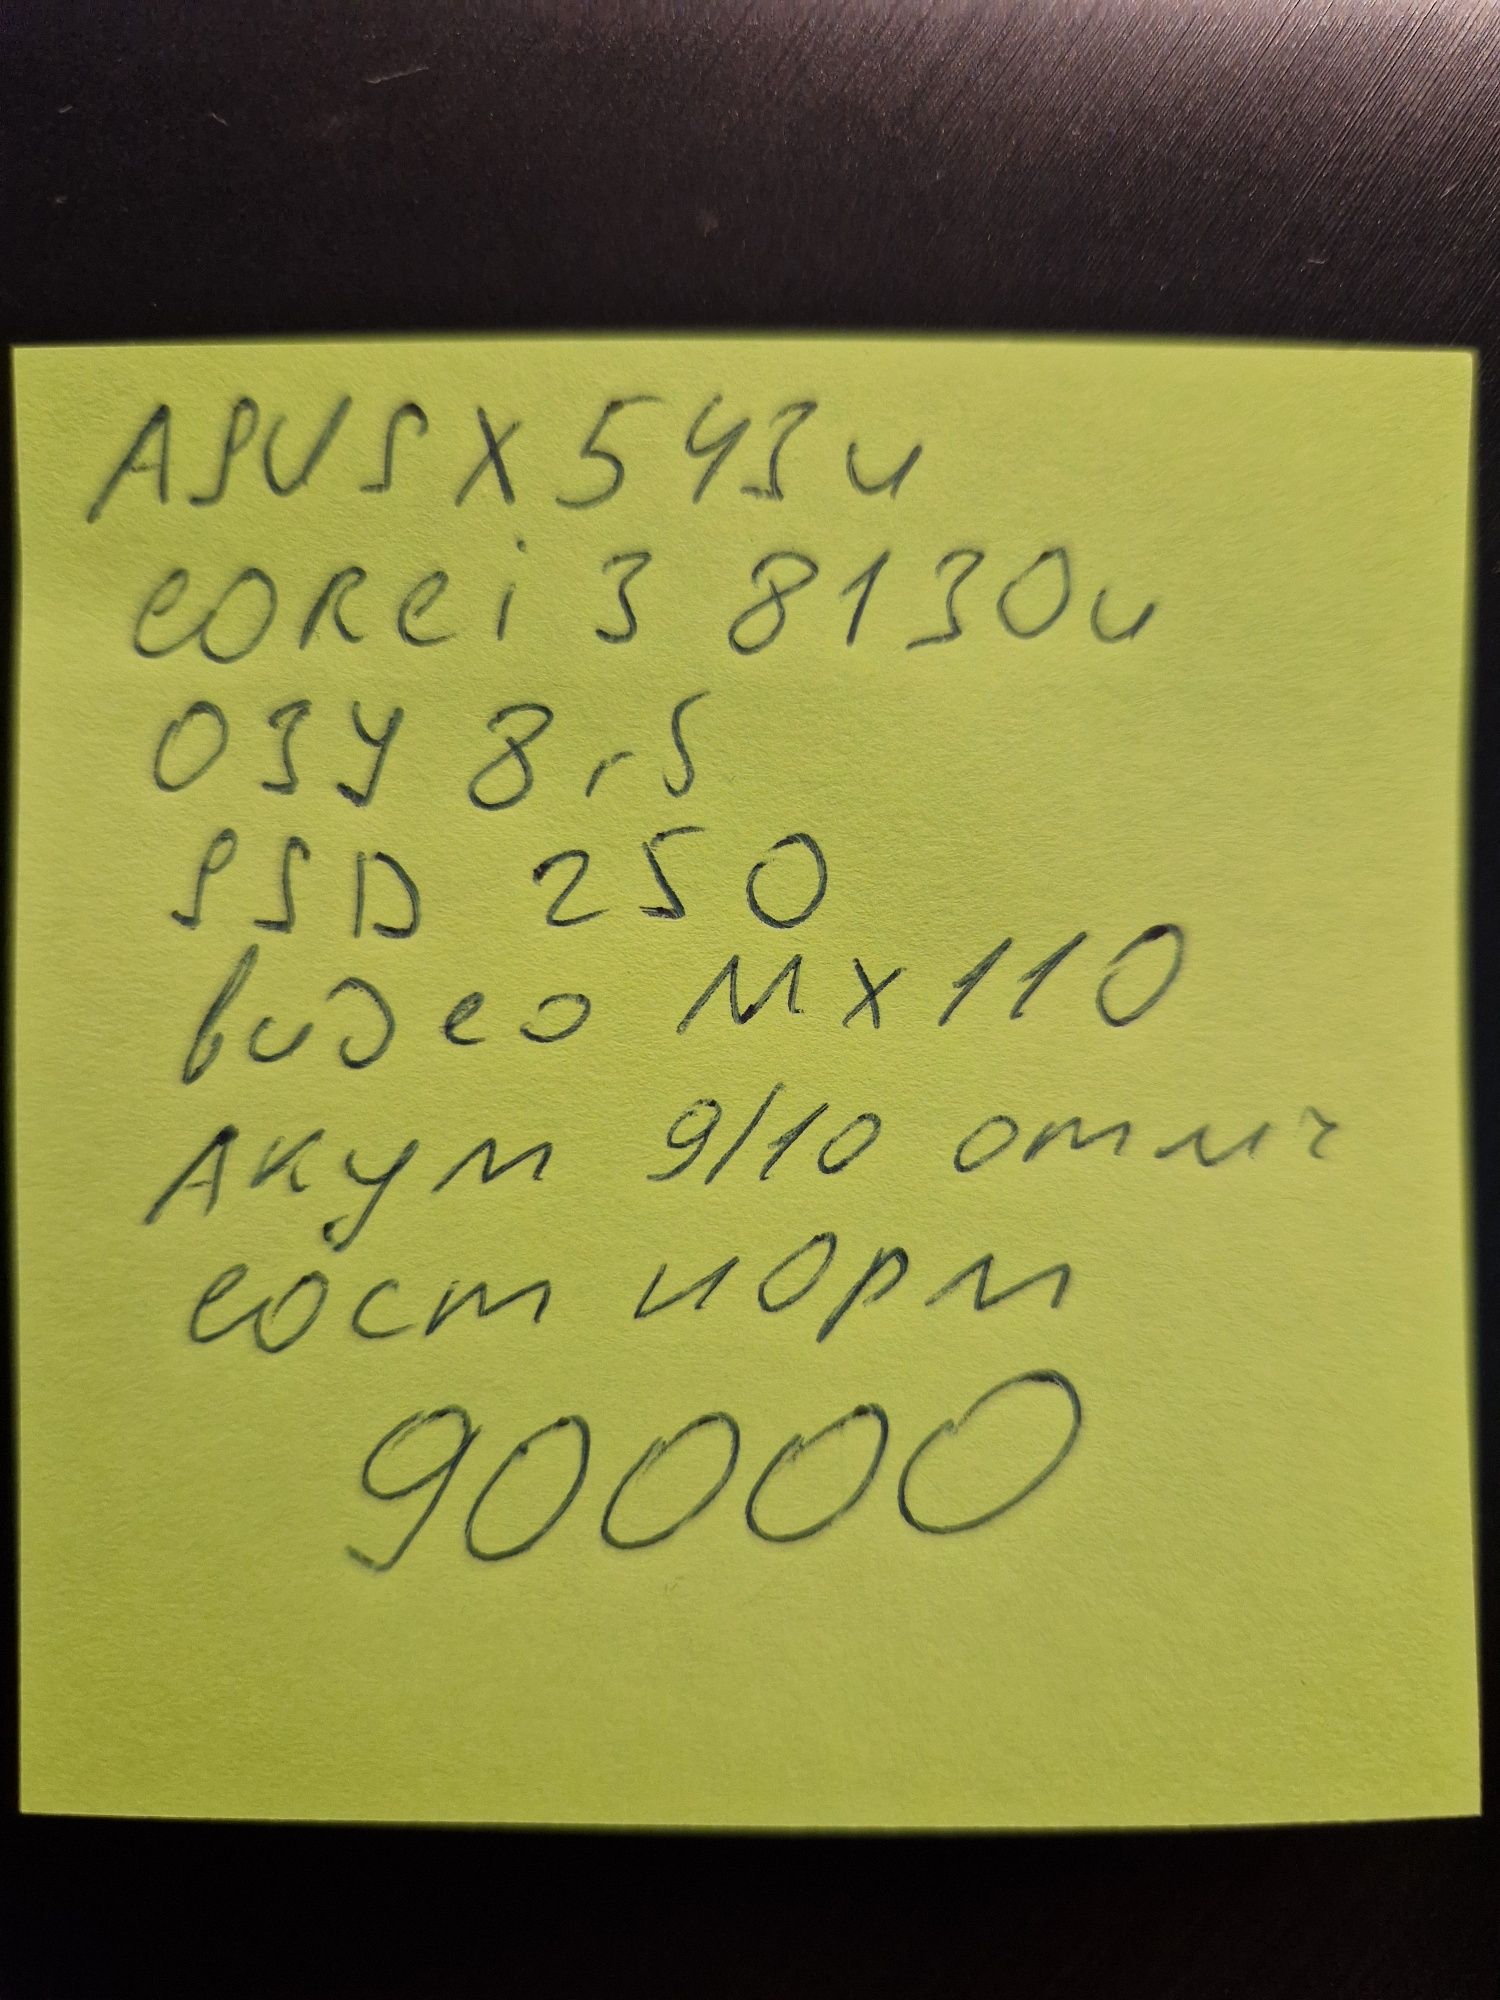 ASUS X543u
COREi3 8130u
ОЗУ 8гб
SSD 250
видео Mx110
Акум 9/10 отлич
сост норм
90000